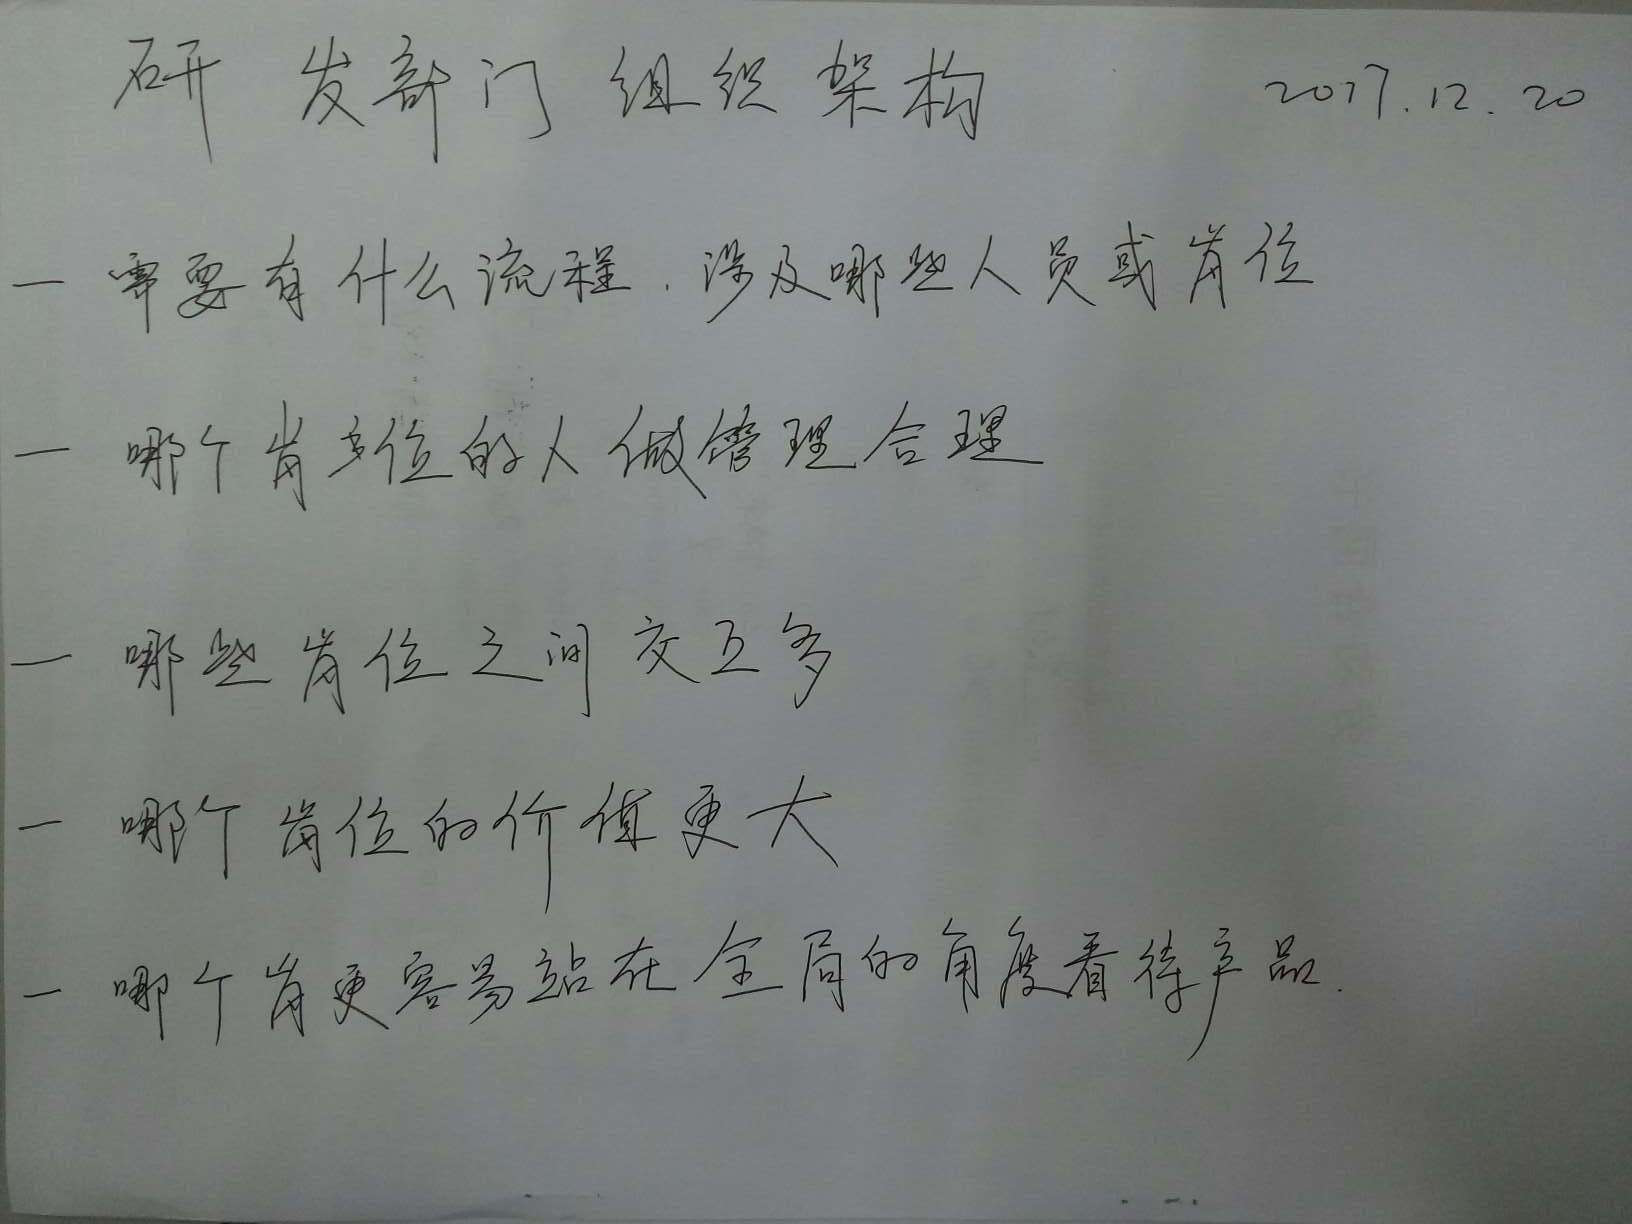 研发部门组织架构 2017.12.20
一 需要有什么流程.涉及哪些人员或岗位
一 哪个岗位的人做管理合理
一 哪些岗位之间交互多
一 哪个岗位的价值更大
一 哪个岗更容易站在全局的角度看待产品.